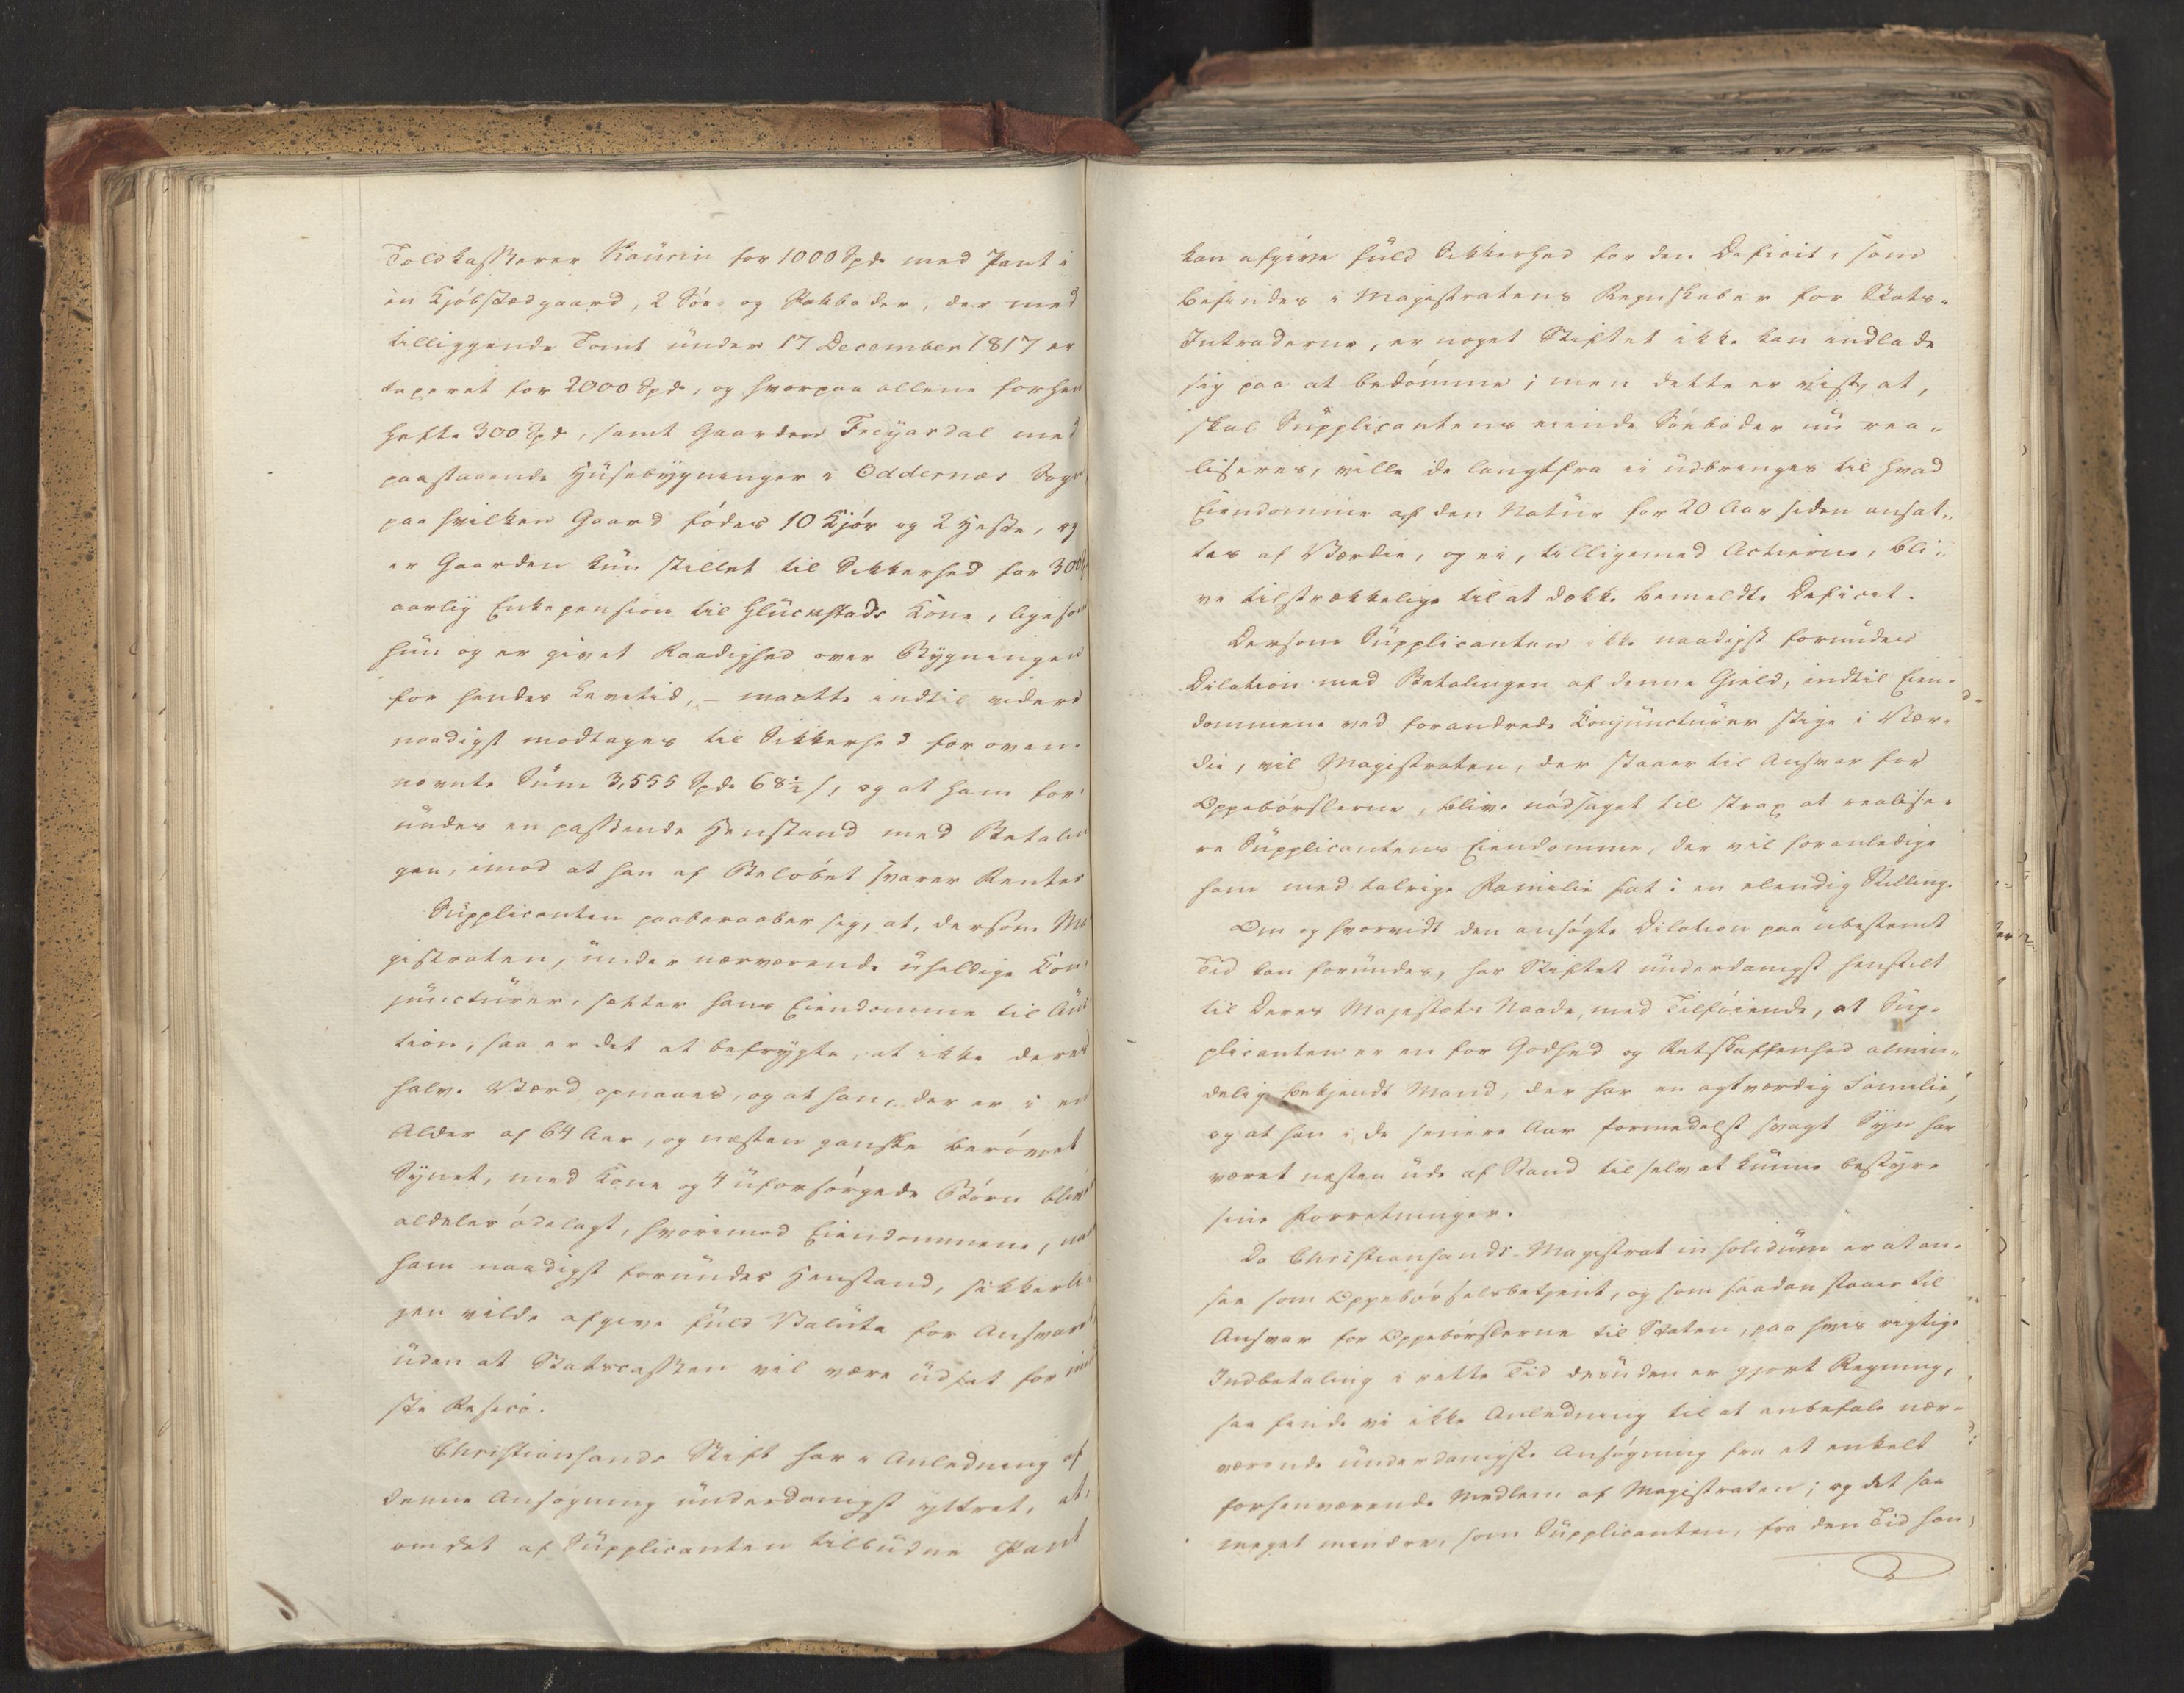 Toldkasserer Kaurin for 1000 Spd. med Pant i
en Kjøbstedgaard, 2 Søe- og Pakboder, der med
tilliggende Tomt under 17 December 1817 er
taxeret for 2000 Spd, og hvorpaa allene forhen
hefte 300 Spd, samt Gaarden Frøyasdal med
paastaaende Huusebygninger i Oddernæs Sogn
paa hvilken Gaard fødes 10 Kjør og 2 Heste, og
er Gaarden kun stillet til Sikkerhed for 300
aarlig Enkepension til Glückstads Kone, ligesom
hun og er givet Raadighed over Bygningen
for hendes Levetid, – maatte indtil videre
naadigst modtages til Sikkerhed for oven-
nævnte Sum 3,555 Spd. 68½ s, og at ham for-
undes en passende Henstand med Betalin-
gen, imod at han af Beløbet svarer Renter
Supplicanten paaberaaber sig, at, dersom Ma-
gistraten, under nærværende uheldige Kon-
juncturer, sætter hans Eiendomme til Auc-
tion, saa er det at befrygte, at ikke deres
halve Værd opnaaes, og at han, der er i en
Alder af 64 Aar, og næsten ganske berøvet
Synet, med Kone og 4 uforsørgede Børn bliver
aldeles ødelagt, hvorimod Eiendommene, naar
ham naadigst forundes Henstand, sikkerli-
gen vilde afgive fuld Valuta for Ansvaret,
uden at Statscassen vil være udsat for mind-
ste Resico.
Christiansands Stift har i Anledning af
denne Ansøgning underdanigst yttret, at,
om det af Supplicanten tilbudne Pant
kan afgive fuld Sikkerhed for den Deficit, som
befindes i Magistratens Regnskaber for Stats-
Intraderne, er noget Stiftet ikke kan indlade
sig paa at bedømme; men dette er vist, at,
skal Supplicantens eiende Søeboder nu rea-
liseres, ville de langtfra ei udbringes til hvad
Eiendomme af den Natur for 20 Aar siden ansat-
tes af Værdie, og ei, tilligemed Actierne, bli-
ve tilstrækkelige til at dække bemeldte Deficit.
Dersom Supplicanten ikke naadigst forundes
Dilation med Betalingen af denne Gield, indtil Eien-
dommene ved forandrede Conjuncturer stige i Vær-
die, vil Magistraten, der staaer til Ansvar for
Oppebørslerne, blive nødsaget til strax at realise-
re Supplicantens Eiendomme, der vil foranledige
ham med talrige Familie sat i en elendig Stilling.
Om og hvorvidt den ansøgte Dilation paa ubestemt
Tid kan forundes, har Stiftet underdanigst henstilt
til Deres Majestæts Naade, med Tilføiende, at Sup-
plicanten er en for Godhed og Retskaffenhed almin-
delig bekjendt Mand, der har en agtværdig Familie,
og at han i de senere Aar formedelst svagt Syn har
været næsten ude af Stand til selv at kunne bestyre
sine Forretninger.
Da Christiansands-Magistrat in solidum er at an-
see som Oppebørselsbetjent, og som saadan staaer til
Ansvar for Oppebørslerne til Staten, paa hvis rigtige
Indbetaling i rette Tid desuden er gjort Regning,
saa finde vi ikke Anledning til at anbefale nær-
værende underdanigste Ansøgning fra et enkelt
forhenværende Medlem af Magistraten; og det saa
meget mindre, som Supplicanten, fra den Tid han